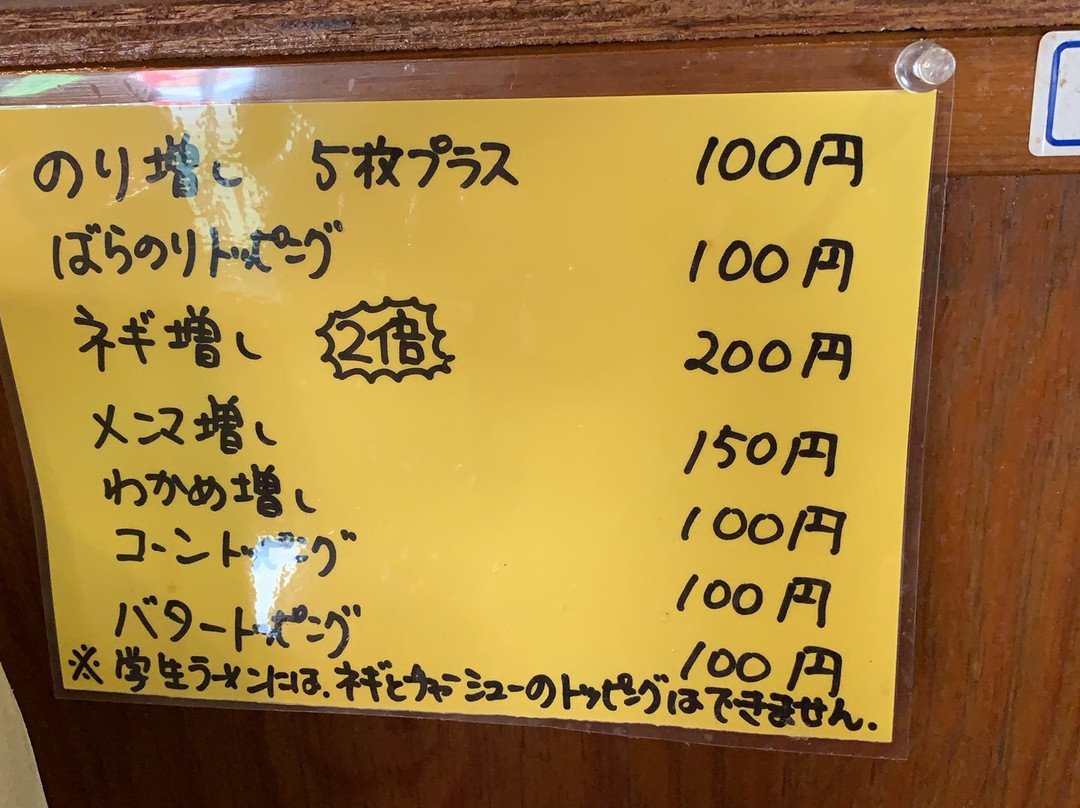 のり増し 5枚プラス 100円
ばらのりトッピング 100円
ネギ増し 2倍 200円
メンマ増し 150円
わかめ増し 100円
コーントッピング 100円
バタートッピング 100円
※学生ラーメンには、ネギとチャーシューのトッピングはできません.